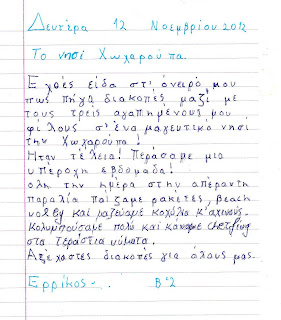 Δευτέρα 12 Νοεμβρίου 2012
Το νησί Χωχαρούπα.
Εχθές είδα στ' όνειρό μου
πως πήγα διακοπές μαζί με
τους τρεις αγαπημένους μου
φίλους σ' ένα μαγευτικό νησί
την Χωχαρούπα!
Ήταν τέλεια! Περάσαμε μια
υπέροχη εβδομάδα!
όλη την ημέρα στην απέραντη
παραλία παίζαμε ρακέτες, beach
volley και μαζεύαμε κοχύλια κ' αχινούς.
Κολυμπούσαμε πολύ και κάναμε
στα τεράστια κύματα.
Αξέχαστες διακοπές για όλους μας.
Ερρίκος -. Β'2